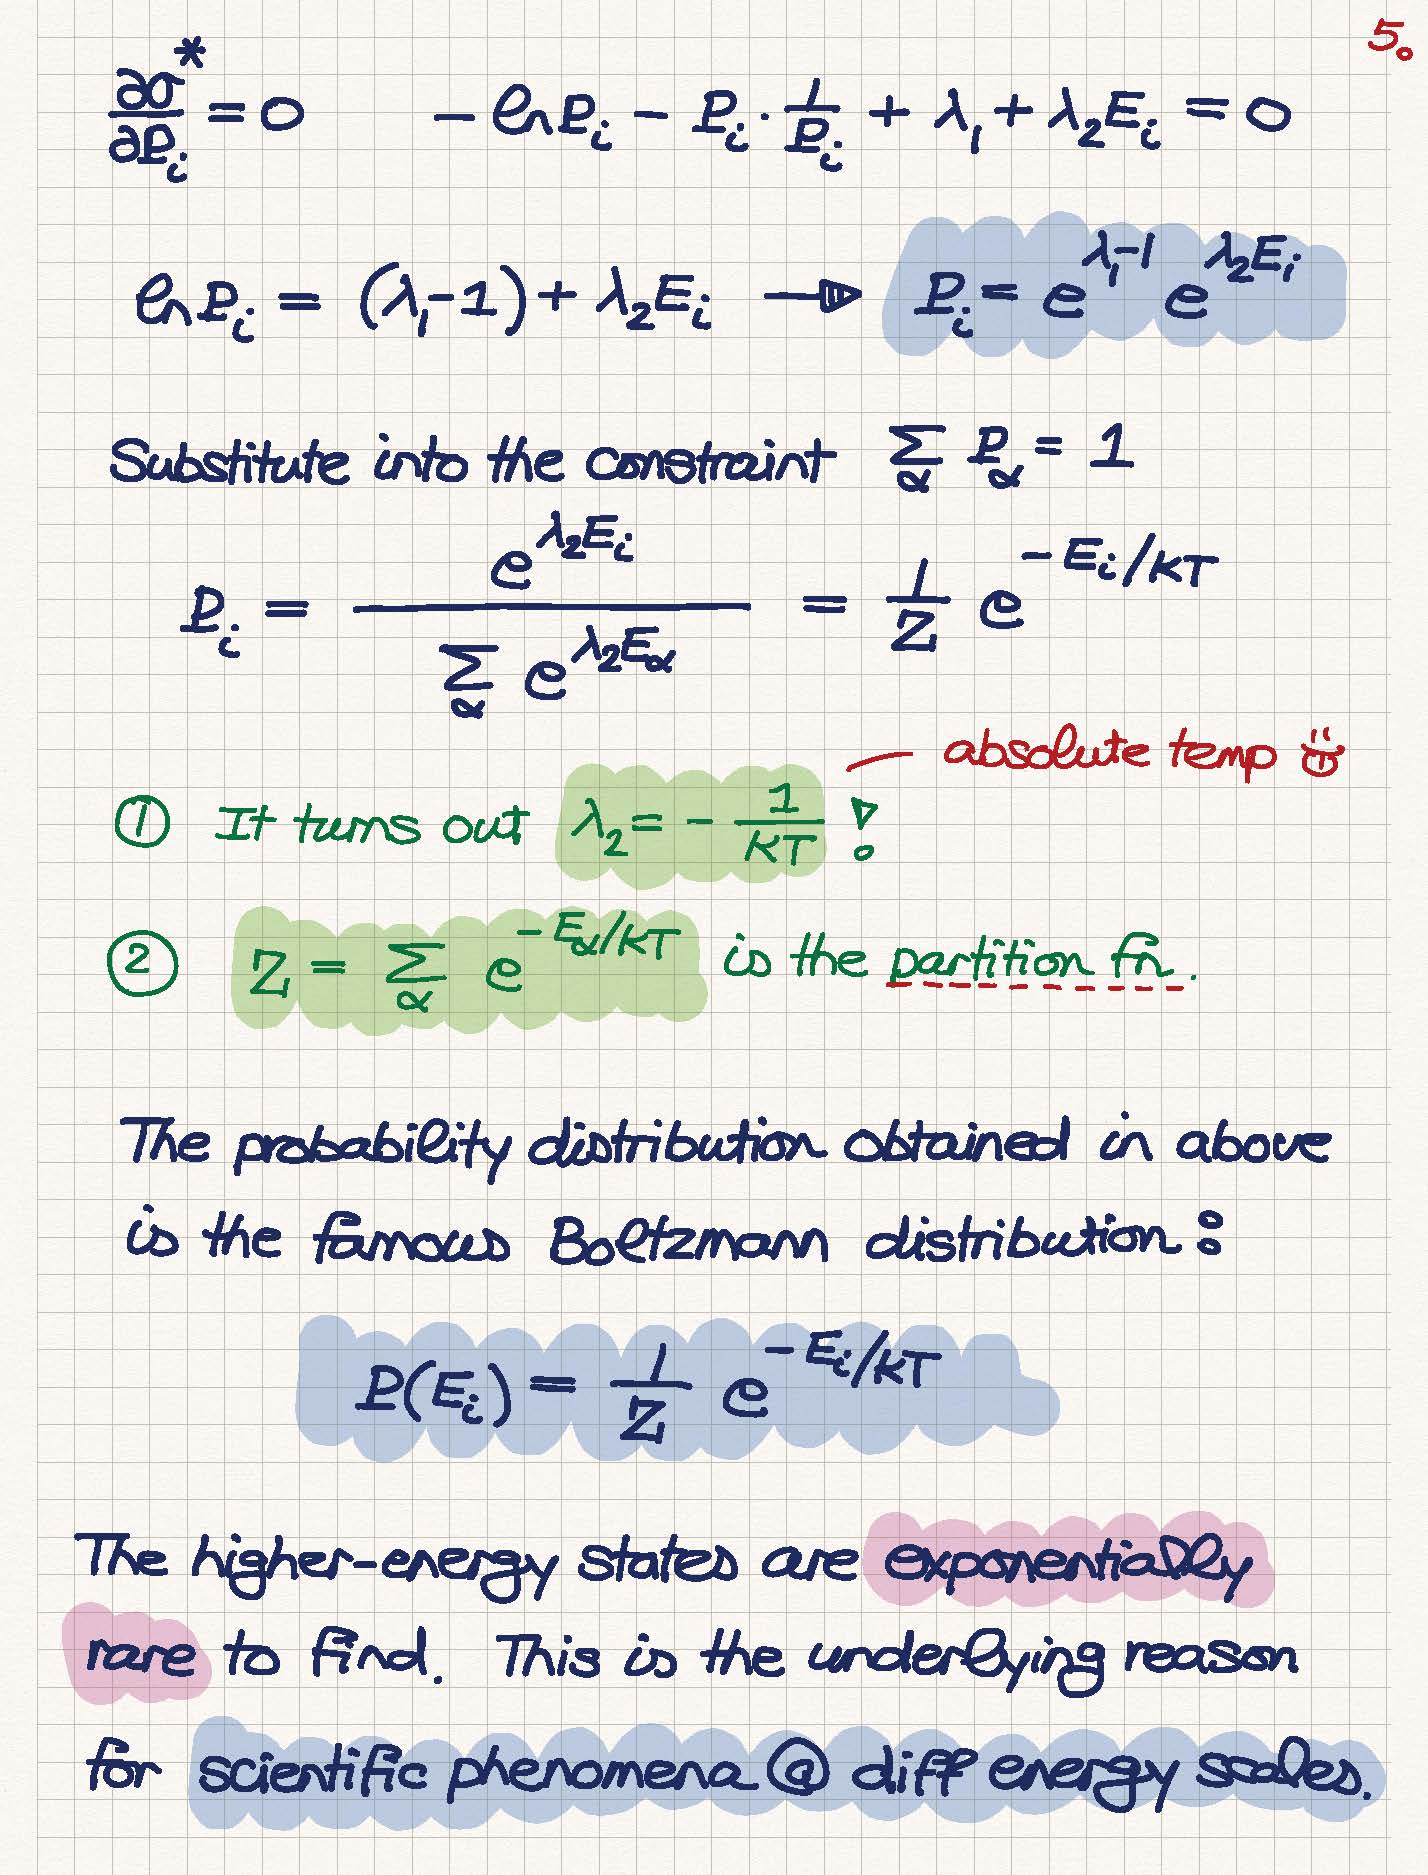 5.
∂σ*/∂Pᵢ = 0   - ln Pᵢ - Pᵢ · 1/Pᵢ + λ₁ + λ₂Eᵢ = 0
ln Pᵢ = (λ₁ - 1) + λ₂Eᵢ → Pᵢ = e^(λ₁-1) e^(λ₂Eᵢ)
Substitute into the constraint Σ_α P_α = 1
Pᵢ = e^(λ₂Eᵢ) / Σ_α e^(λ₂E_α) = 1/Z e^(-Eᵢ/kT)
absolute temp
① It turns out λ₂ = - 1/kT !
② Z = Σ_α e^(-E_α/kT) is the partition fn.
The probability distribution obtained in above
is the famous Boltzmann distribution:
P(Eᵢ) = 1/Z e^(-Eᵢ/kT)
The higher-energy states are exponentially
rare to find. This is the underlying reason
for scientific phenomena @ diff energy scales.